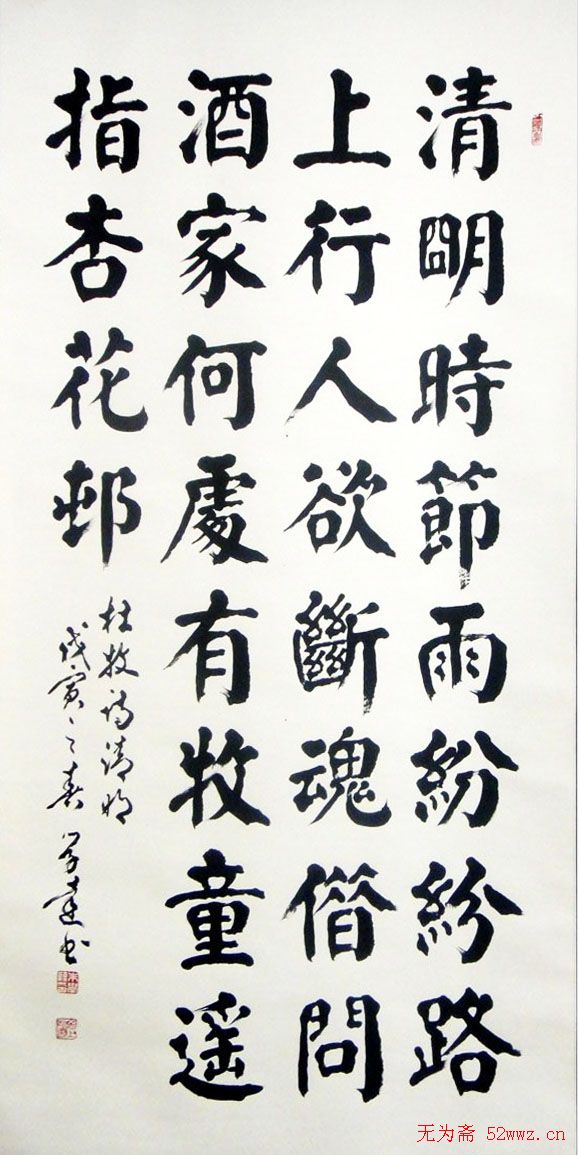 清明時節雨紛紛路
上行人欲斷魂借問
酒家何處有牧童遥
指杏花邨
杜牧诗清明
戊寅之春 学達书
无为斋 52wwz.cn